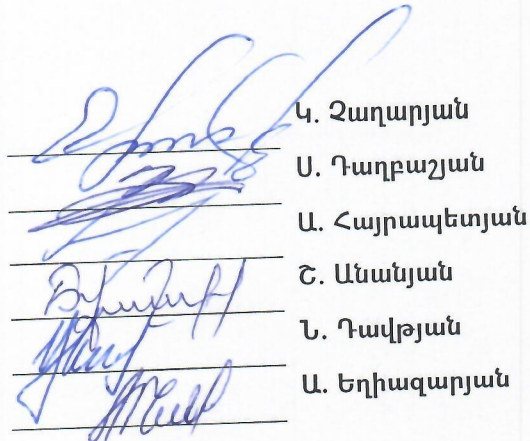 Կ. Չաղարյան
Ս. Դաղբաշյան
Ա. Հայրապետյան
Շ. Անանյան
Ն. Դավթյան
Ա. Եղիազարյան